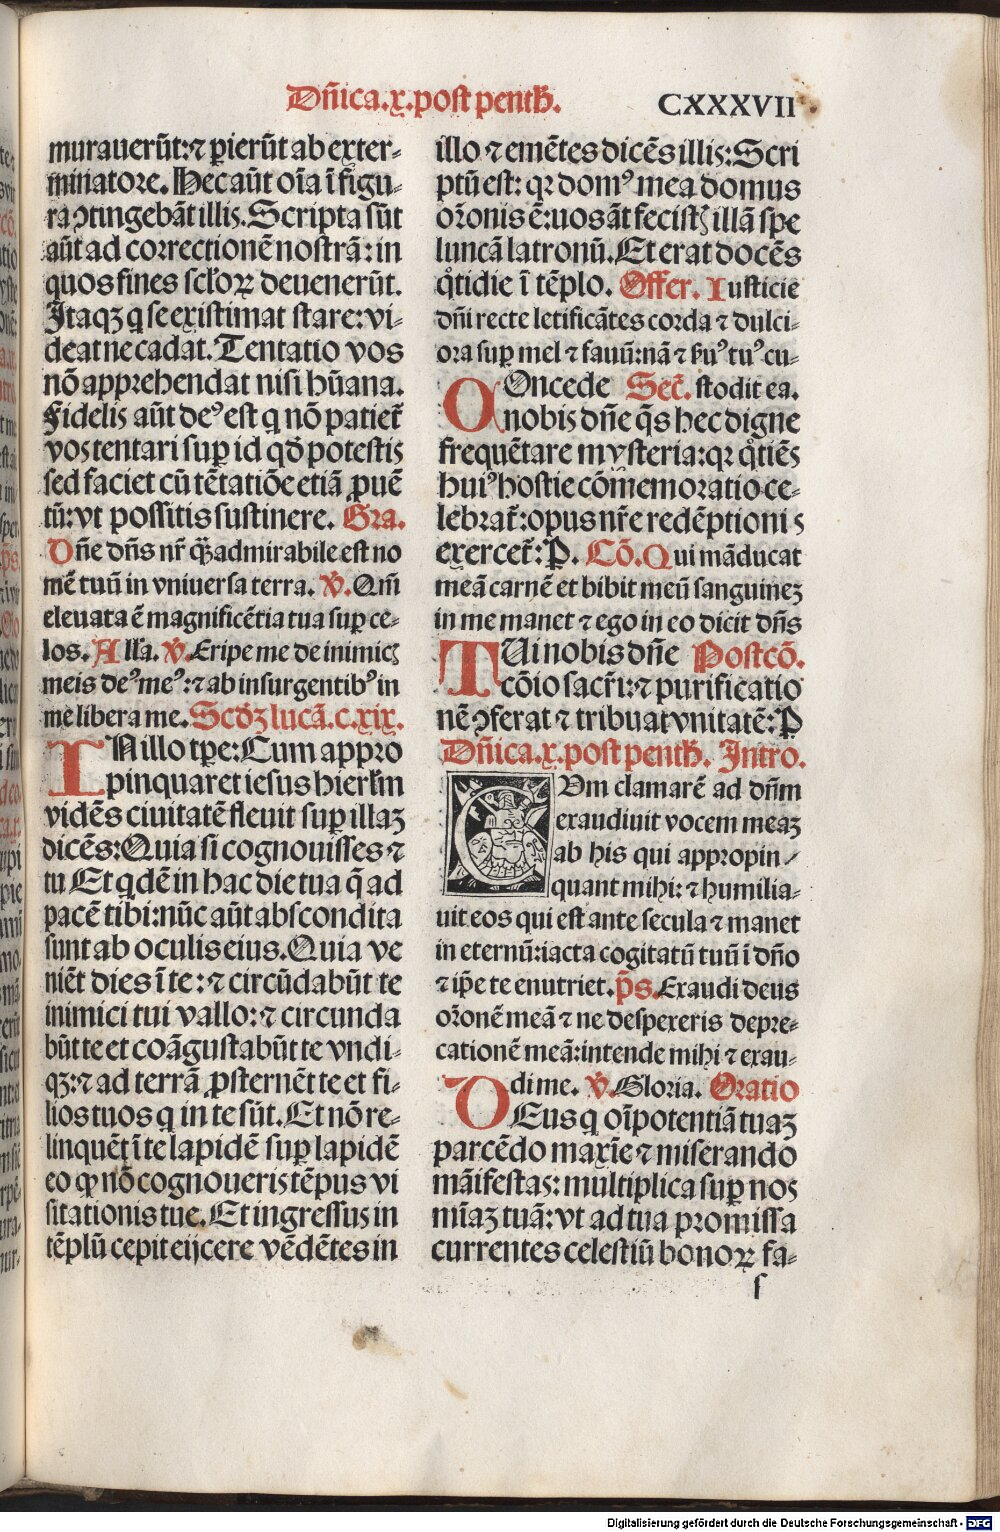 Dñica.x.post penth̄. CXXXVII
murauerūt:⁊ ꝑierūt ab exter-
minatore. Hec aūt oīa ī figu-
ra ꝯtingebāt illis. Scripta sūt
aūt ad correctionē nostrā: in
quos fines scl̓oꝝ deuenerūt.
Itaqꝫ q̄ se existimat stare: vi-
deat ne cadat. Tentatio vos
nō apprehendat nisi hūana.
Fidelis aūt deꝰ est q̄ nō patiet̄
vos tentari suꝑ id qd̄ potestis
sed faciet cū tētatiōe etiā ꝓuē
tū: vt possitis sustinere. Gra.
Dñe dñs nr̄ q̄ꝫ admirabile est no
mē tuū in vniuersa terra. V̄. Qm̄
eleuata ē magnificētia tua suꝑ ce-
los. Alla. V̄. Eripe me de inimicꝭ
meis deꝰ meꝰ: ⁊ ab insurgentibꝰ in
me libera me. Scd̄ꝫ lucā. c.xix.
IN illo tꝑe: Cum appro
pinquaret iesus hierl̄m
vidēs ciuitatē fleuit suꝑ illaꝫ
dicēs: Quia si cognouisses ⁊
tu Et qdē in hac die tua q̄ ad
pacē tibi: nūc aūt abscondita
sunt ab oculis eius. Quia ve
niēt dies ī te: ⁊ circūdabūt te
inimici tui vallo: ⁊ circunda
būt te et coāgustabūt te vndi-
qꝫ: ⁊ ad terrā ꝓsternēt te et fi-
lios tuos q̄ in te sūt. Et nō re-
linquēt ī te lapidē suꝑ lapidē
eo ꝙ nō cognoueris tēpus vi
sitationis tue. Et ingressus in
tēplū cepit eijcere vēdētes in
illo ⁊ emētes dicēs illis: Scri
ptū est: qꝛ domꝰ mea domus
or̄onis ē: uos āt fecistꝭ illā spe
luncā latronū. Et erat docēs
q̊tidie ī tēplo. Offer. Iusticie
dñi recte letificātes corda ⁊ dulci-
ora suꝑ mel ⁊ fauū: nā ⁊ ẜuꝰ tuꝰ cu-
COncede Sec̄. stodit ea.
nobis dñe q̄s hec digne
frequētare mysteria: qꝛ q̊tiēs
huiꝰ hostie cōmemoratio ce-
lebrat̄: opus nr̄e redēptionis
exercet̄: P. Cō. Qui māducat
meā carnē et bibit meū sanguineꝫ
in me manet ⁊ ego in eo dicit dñs
TUi nobis dñe Postcō.
cōio sacr̄i: ⁊ purificatio
nē ꝯferat ⁊ tribuat vnitatē: P
Dñica.x.post penth̄. Intro.
CUm clamarē ad dñm
exaudiuit vocem meaꝫ
ab his qui appropin/
quant mihi: ⁊ humilia-
uit eos qui est ante secula ⁊ manet
in eternū: iacta cogitatū tuū ī dño
⁊ ip̄e te enutriet. p̄s. Exaudi deus
or̄onē meā ⁊ ne despexeris depre-
cationē meā: intende mihi ⁊ exau-
di me. V̄. Gloria. Oratio
DEus q̄ oīpotentiā tuaꝫ
parcēdo maxīe ⁊ miserando
māifestas: multiplica suꝑ nos
mīaꝫ tuā: vt ad tua promissa
currentes celestiū bonoꝝ fa-
s
Digitalisierung gefördert durch die Deutsche Forschungsgemeinschaft - DFG